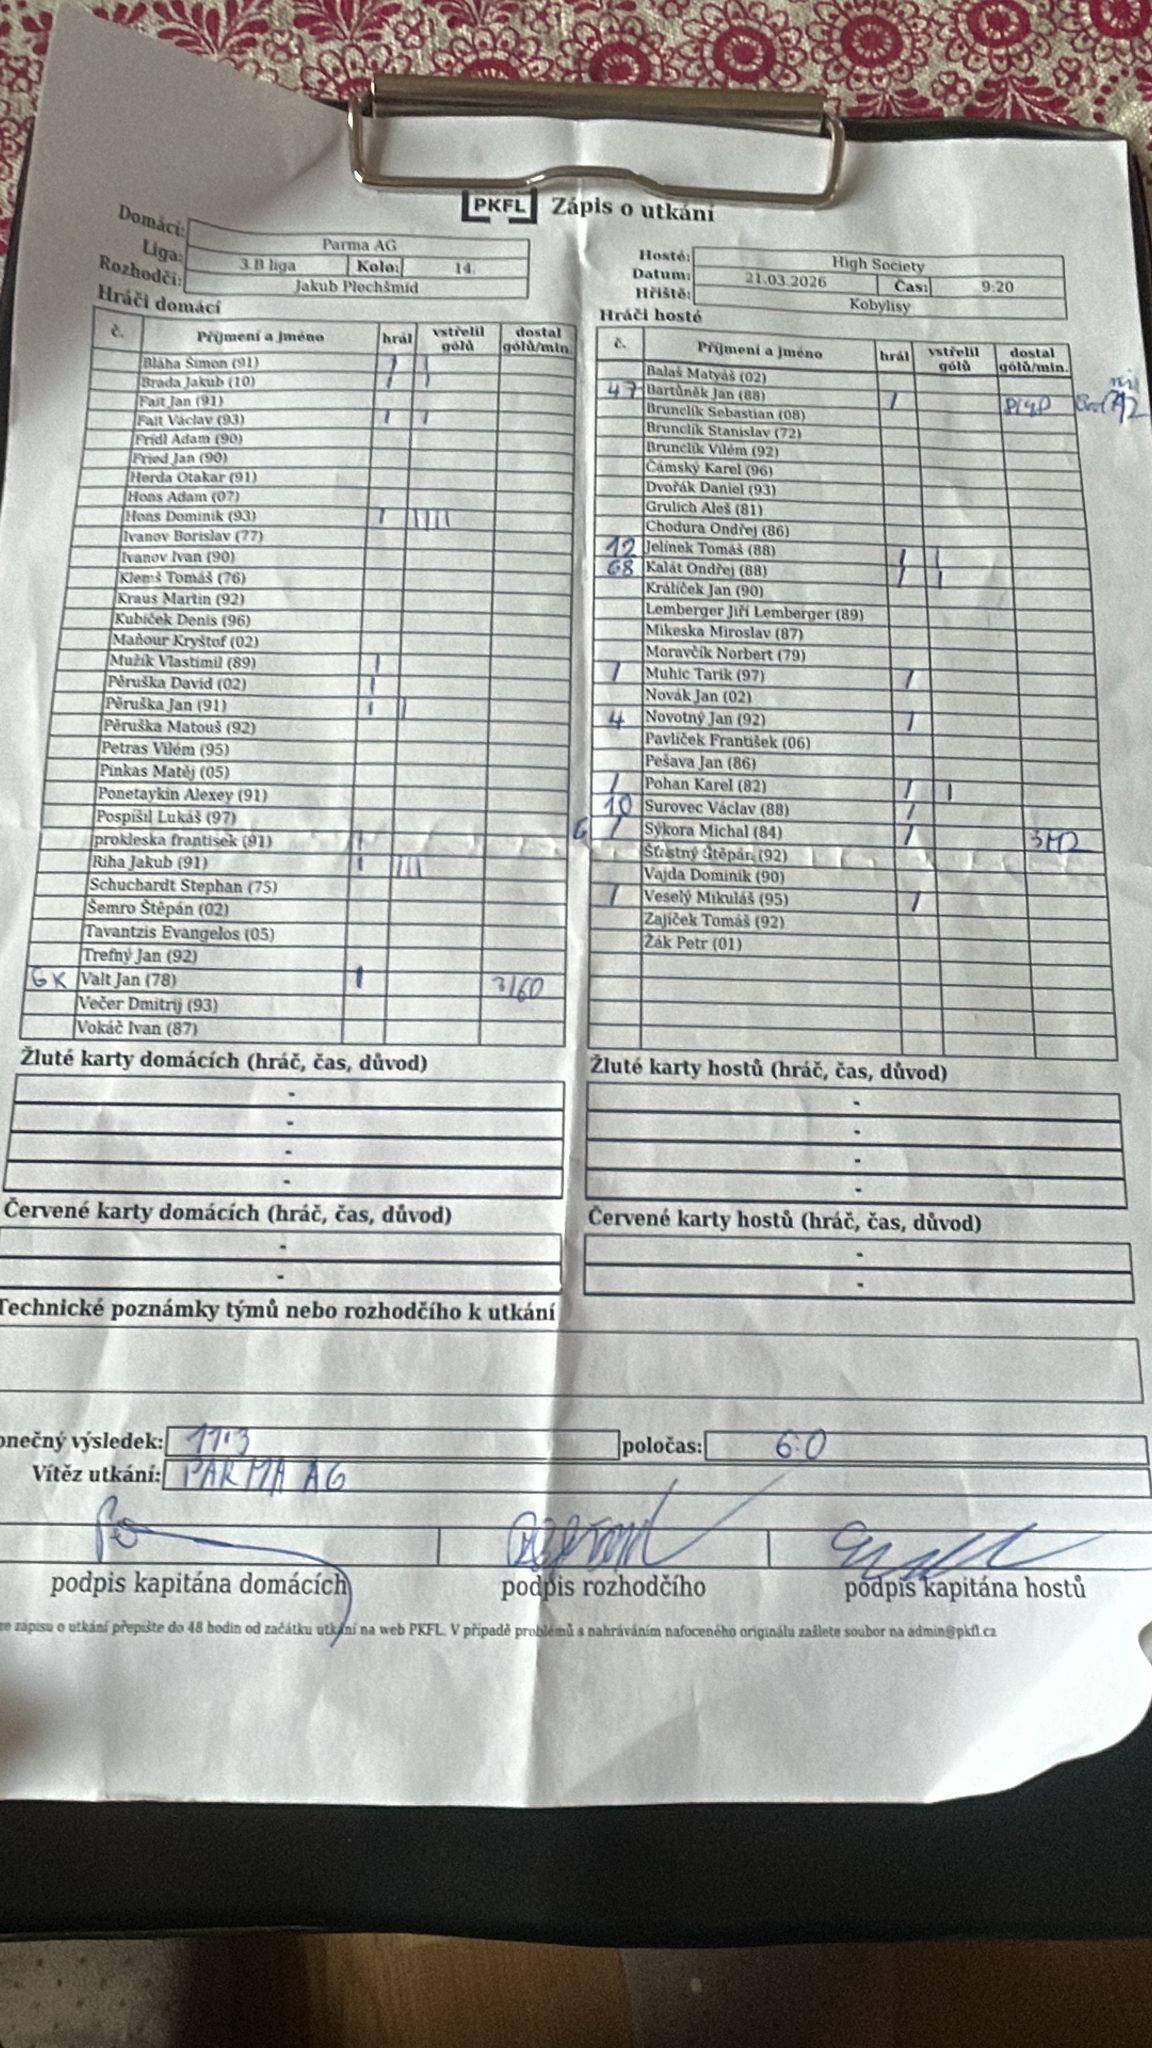 PKFL Zápis o utkání
Domácí: Parma AG
Liga: 3.B liga Kolo: 14.
Rozhodčí: Jakub Plechšmíd
Hosté: High Society
Datum: 21.03.2026 Čas: 9:20
Hřiště: Kobylisy
Hráči domácí
č. Příjmení a jméno hrál vstřelil gólů dostal gólů/min.
Bláha Šimon (91) | |
Brada Jakub (10) | |
Fait Jan (91)
Fait Václav (93) | |
Fridl Adam (90)
Fried Jan (90)
Herda Otakar (91)
Hons Adam (07)
Hons Dominik (93) | ||||
Ivanov Borislav (77)
Ivanov Ivan (90)
Klemš Tomáš (76)
Kraus Martin (92)
Kubíček Denis (96)
Maňour Kryštof (02)
Mužík Vlastimil (89) |
Pěruška David (02) |
Pěruška Jan (91) | |
Pěruška Matouš (92)
Petras Vilém (95)
Pinkas Matěj (05)
Ponetaykin Alexey (91)
Pospíšil Lukáš (97)
prokleska frantisek (91) |
Říha Jakub (91) | |||
Schuchardt Stephan (75)
Šemro Štěpán (02)
Tavantzis Evangelos (05)
Trefný Jan (92)
GK Valt Jan (78) | 3/60
Večer Dmitrij (93)
Vokáč Ivan (87)
Hráči hosté
č. Příjmení a jméno hrál vstřelil gólů dostal gólů/min.
Balaš Matyáš (02)
47 Bartůněk Jan (88) |
Brunclík Sebastian (08)
Brunclík Stanislav (72)
Brunclík Vilém (92)
Čámský Karel (96)
Dvořák Daniel (93)
Grulich Aleš (81)
Chodura Ondřej (86)
12 Jelínek Tomáš (88) | |
68 Kalát Ondřej (88) | |
Králíček Jan (90)
Lemberger Jiří Lemberger (89)
Mikeska Miroslav (87)
Moravčík Norbert (79)
/ Muhic Tarik (97) |
Novák Jan (02)
4 Novotný Jan (92) |
Pavlíček František (06)
Pešava Jan (86)
/ Pohan Karel (82) | |
10 Surovec Václav (88) |
G / Sýkora Michal (84) |
Šťastný Štěpán (92)
Vajda Dominik (90)
/ Veselý Mikuláš (95) |
Zajíček Tomáš (92)
Žák Petr (01)
Žluté karty domácích (hráč, čas, důvod)
-
-
-
-
Žluté karty hostů (hráč, čas, důvod)
-
-
-
-
Červené karty domácích (hráč, čas, důvod)
-
-
Červené karty hostů (hráč, čas, důvod)
-
-
Technické poznámky týmů nebo rozhodčího k utkání
onečný výsledek: 11:3 poločas: 6:0
Vítěz utkání: PARMA AG
podpis kapitána domácích podpis rozhodčího podpis kapitána hostů
zápisu o utkání přepište do 48 hodin od začátku utkání na web PKFL. V případě problémů s nahráváním nafoceného originálu zašlete soubor na admin@pkfl.cz